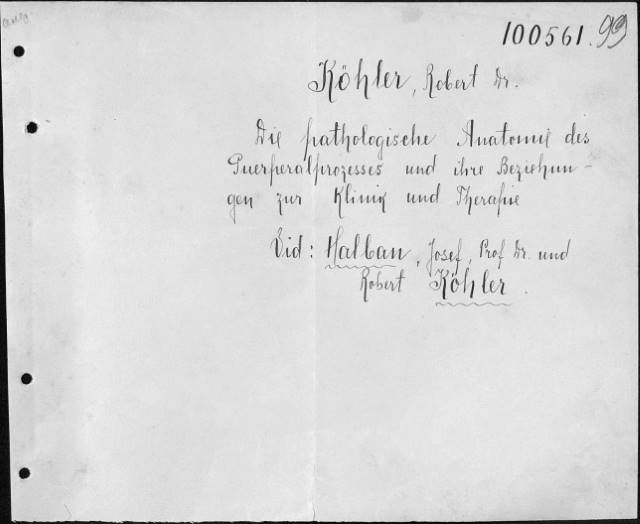 100561. 99
Köhler, Robert Dr.
Die pathologische Anatomie des
Puerperalprozesses und ihre Beziehun-
gen zur Klinik und Therapie
Vid: Halban, Josef, Prof Dr. und
Robert Köhler.